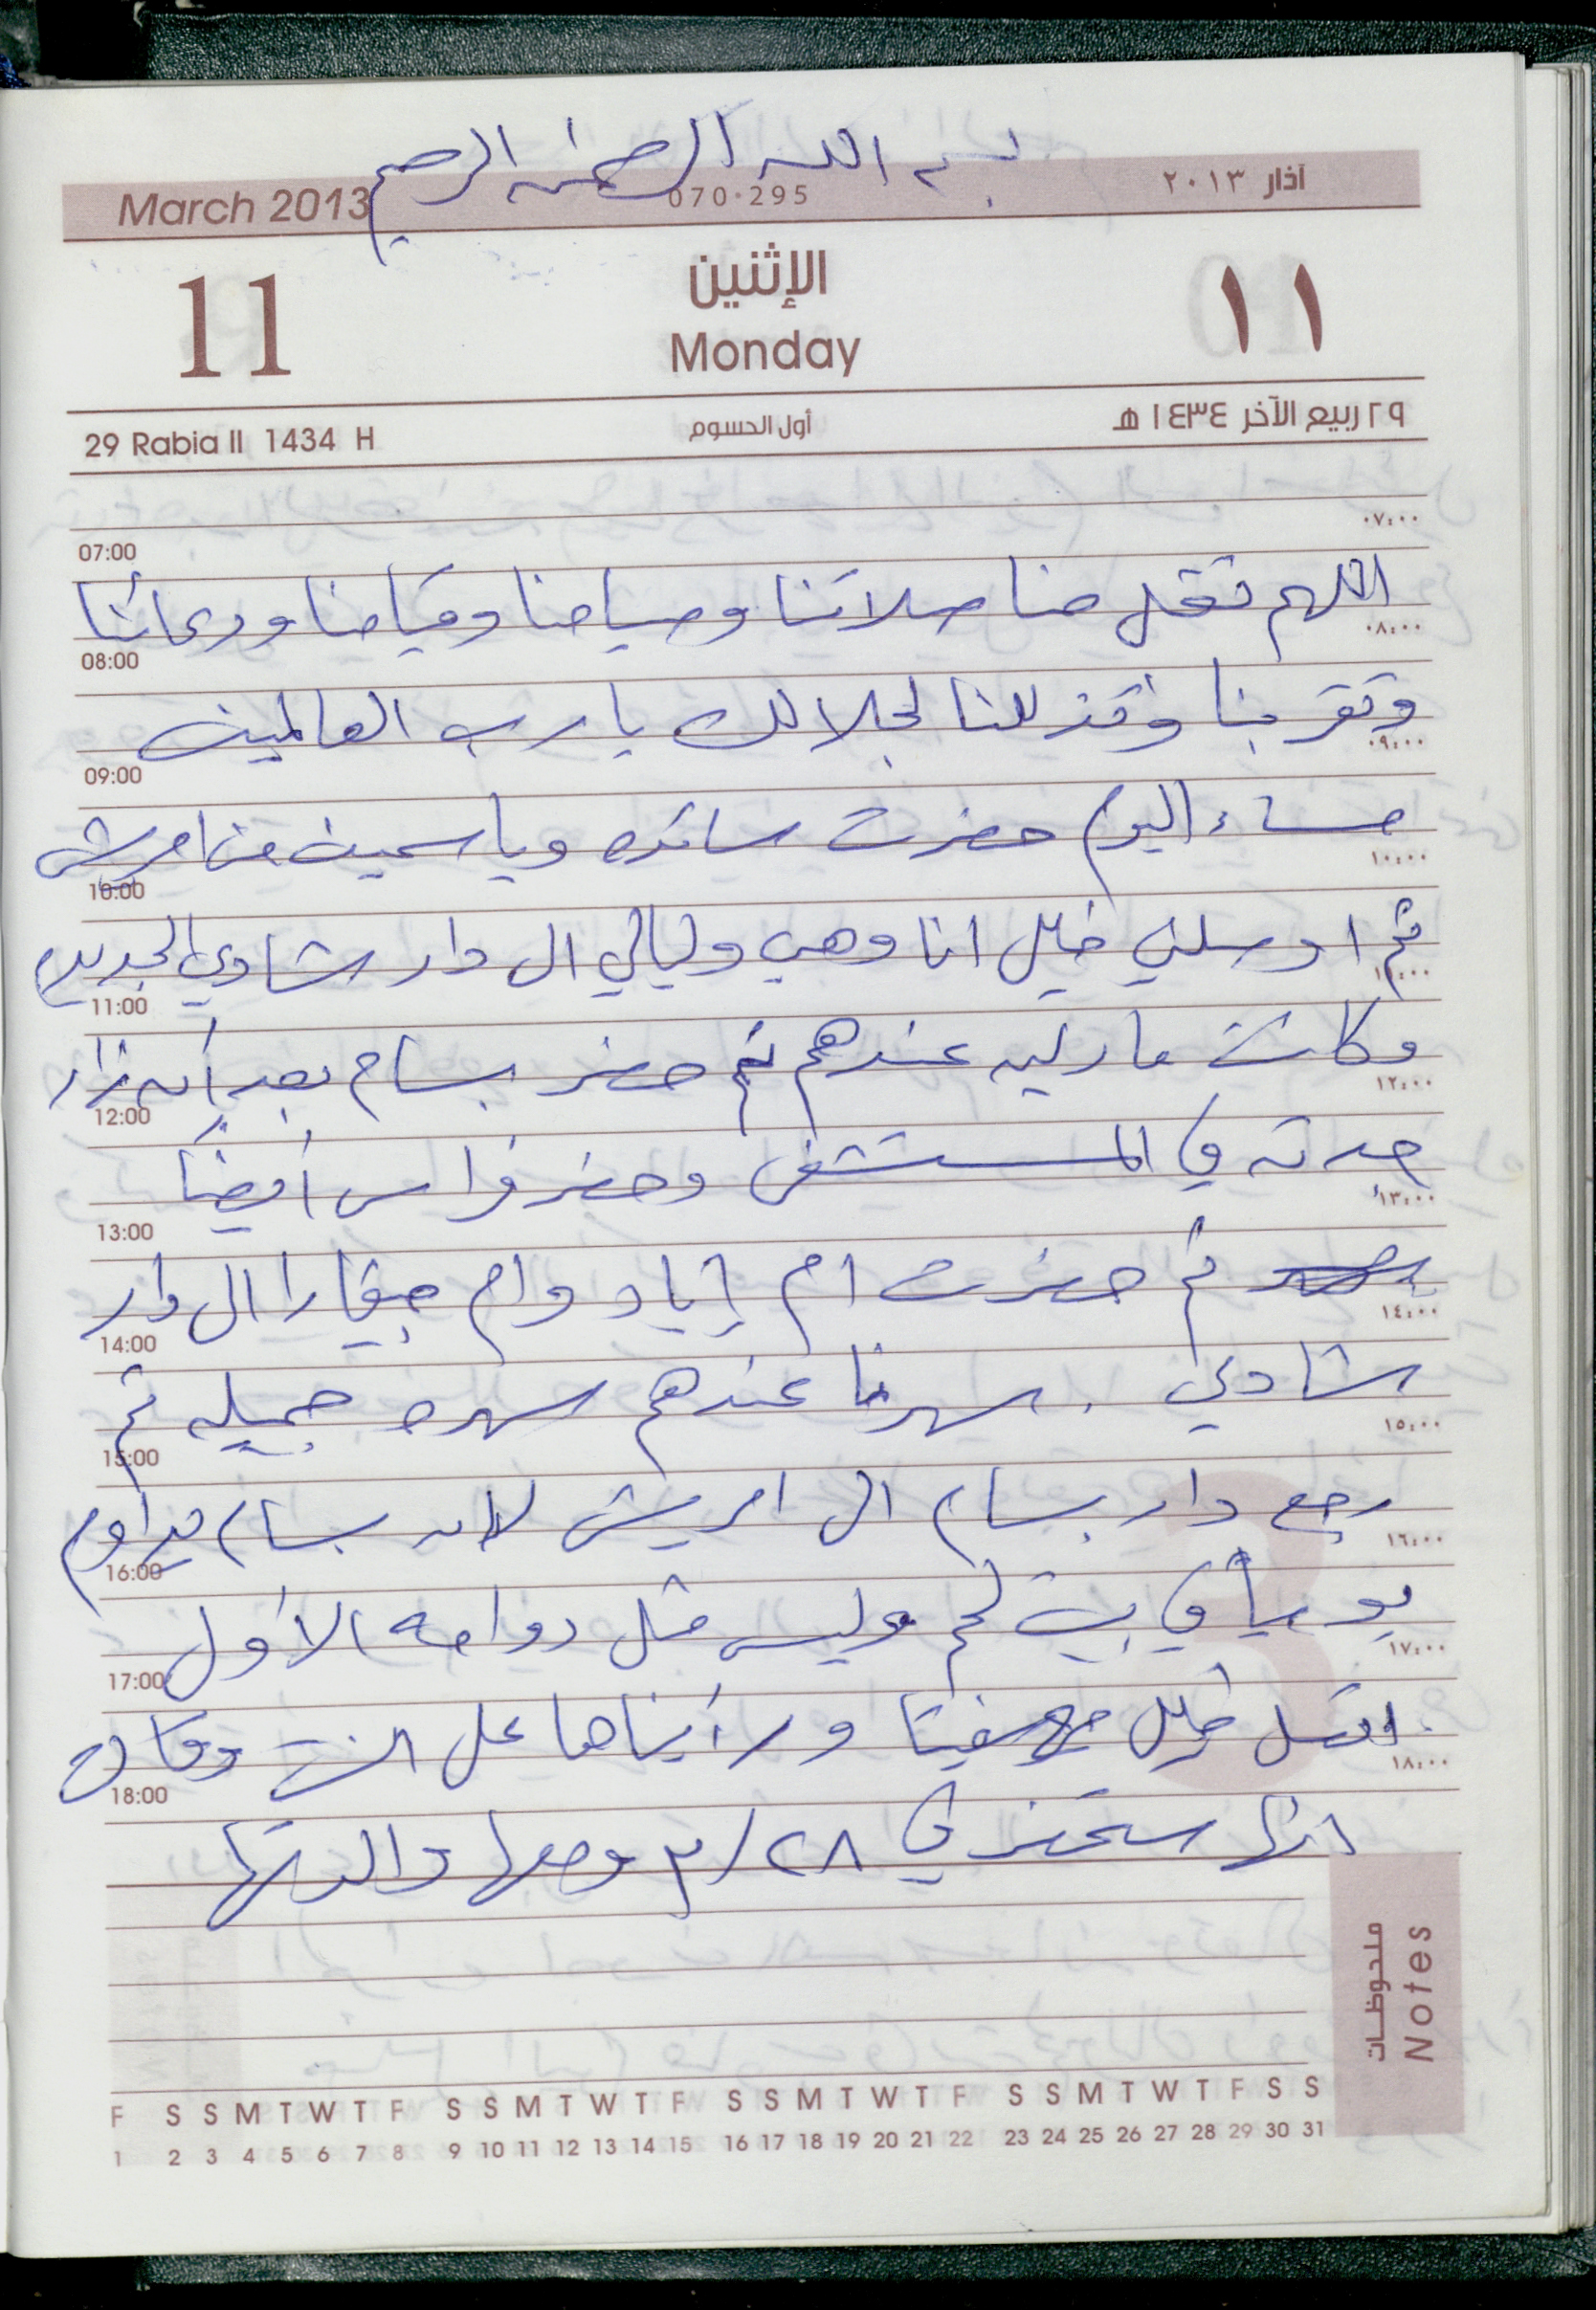 بسم الله الرحمن الرحيم
March 2013 070-295 آذار ٢٠١٣
11 الإثنين ١١
Monday
29 Rabia II 1434 H أول الحسوم ٢٩ ربيع الآخر ١٤٣٤ هـ
٠٧:٠٠
07:00
اللهم تقبل منا صلاتنا وصيامنا وقيامنا ودعائنا
٠٨:٠٠
08:00
وتقربنا وتذللنا لجلالك يا رب العالمين
٠٩:٠٠
09:00
مساء اليوم حضرت سائده وياسمين من امريش
١٠:٠٠
10:00
ثم اوسلني خليل انا وهب وليالي الى دار شادي الجديده
١١:٠٠
11:00
وكانت مارليه عندهم ثم حضر بسام بعد أن زار
١٢:٠٠
12:00
جدته في المستشفى وحضر فراس أيضاً
١٣:٠٠
13:00
ثم حضرت ام إياد وام جيفارا الى دار
١٤:٠٠
14:00
شادي . سهرنا عندهم سهره جميله ثم
١٥:٠٠
15:00
رجع دار بسام الى امريش لان بسام يداوم
١٦:٠٠
16:00
يومياً في بيت لحم وليس مثل دوامه الأول
١٧:٠٠
17:00
اتصل خليل ورأيناها على النت وقال
١٨:٠٠
18:00
انها ستحضر في ٢٨/٣ ومعها والدتها
ملحوظات
Notes
F S S M T W T F S S M T W T F S S M T W T F S S M T W T F S S
1 2 3 4 5 6 7 8 9 10 11 12 13 14 15 16 17 18 19 20 21 22 23 24 25 26 27 28 29 30 31